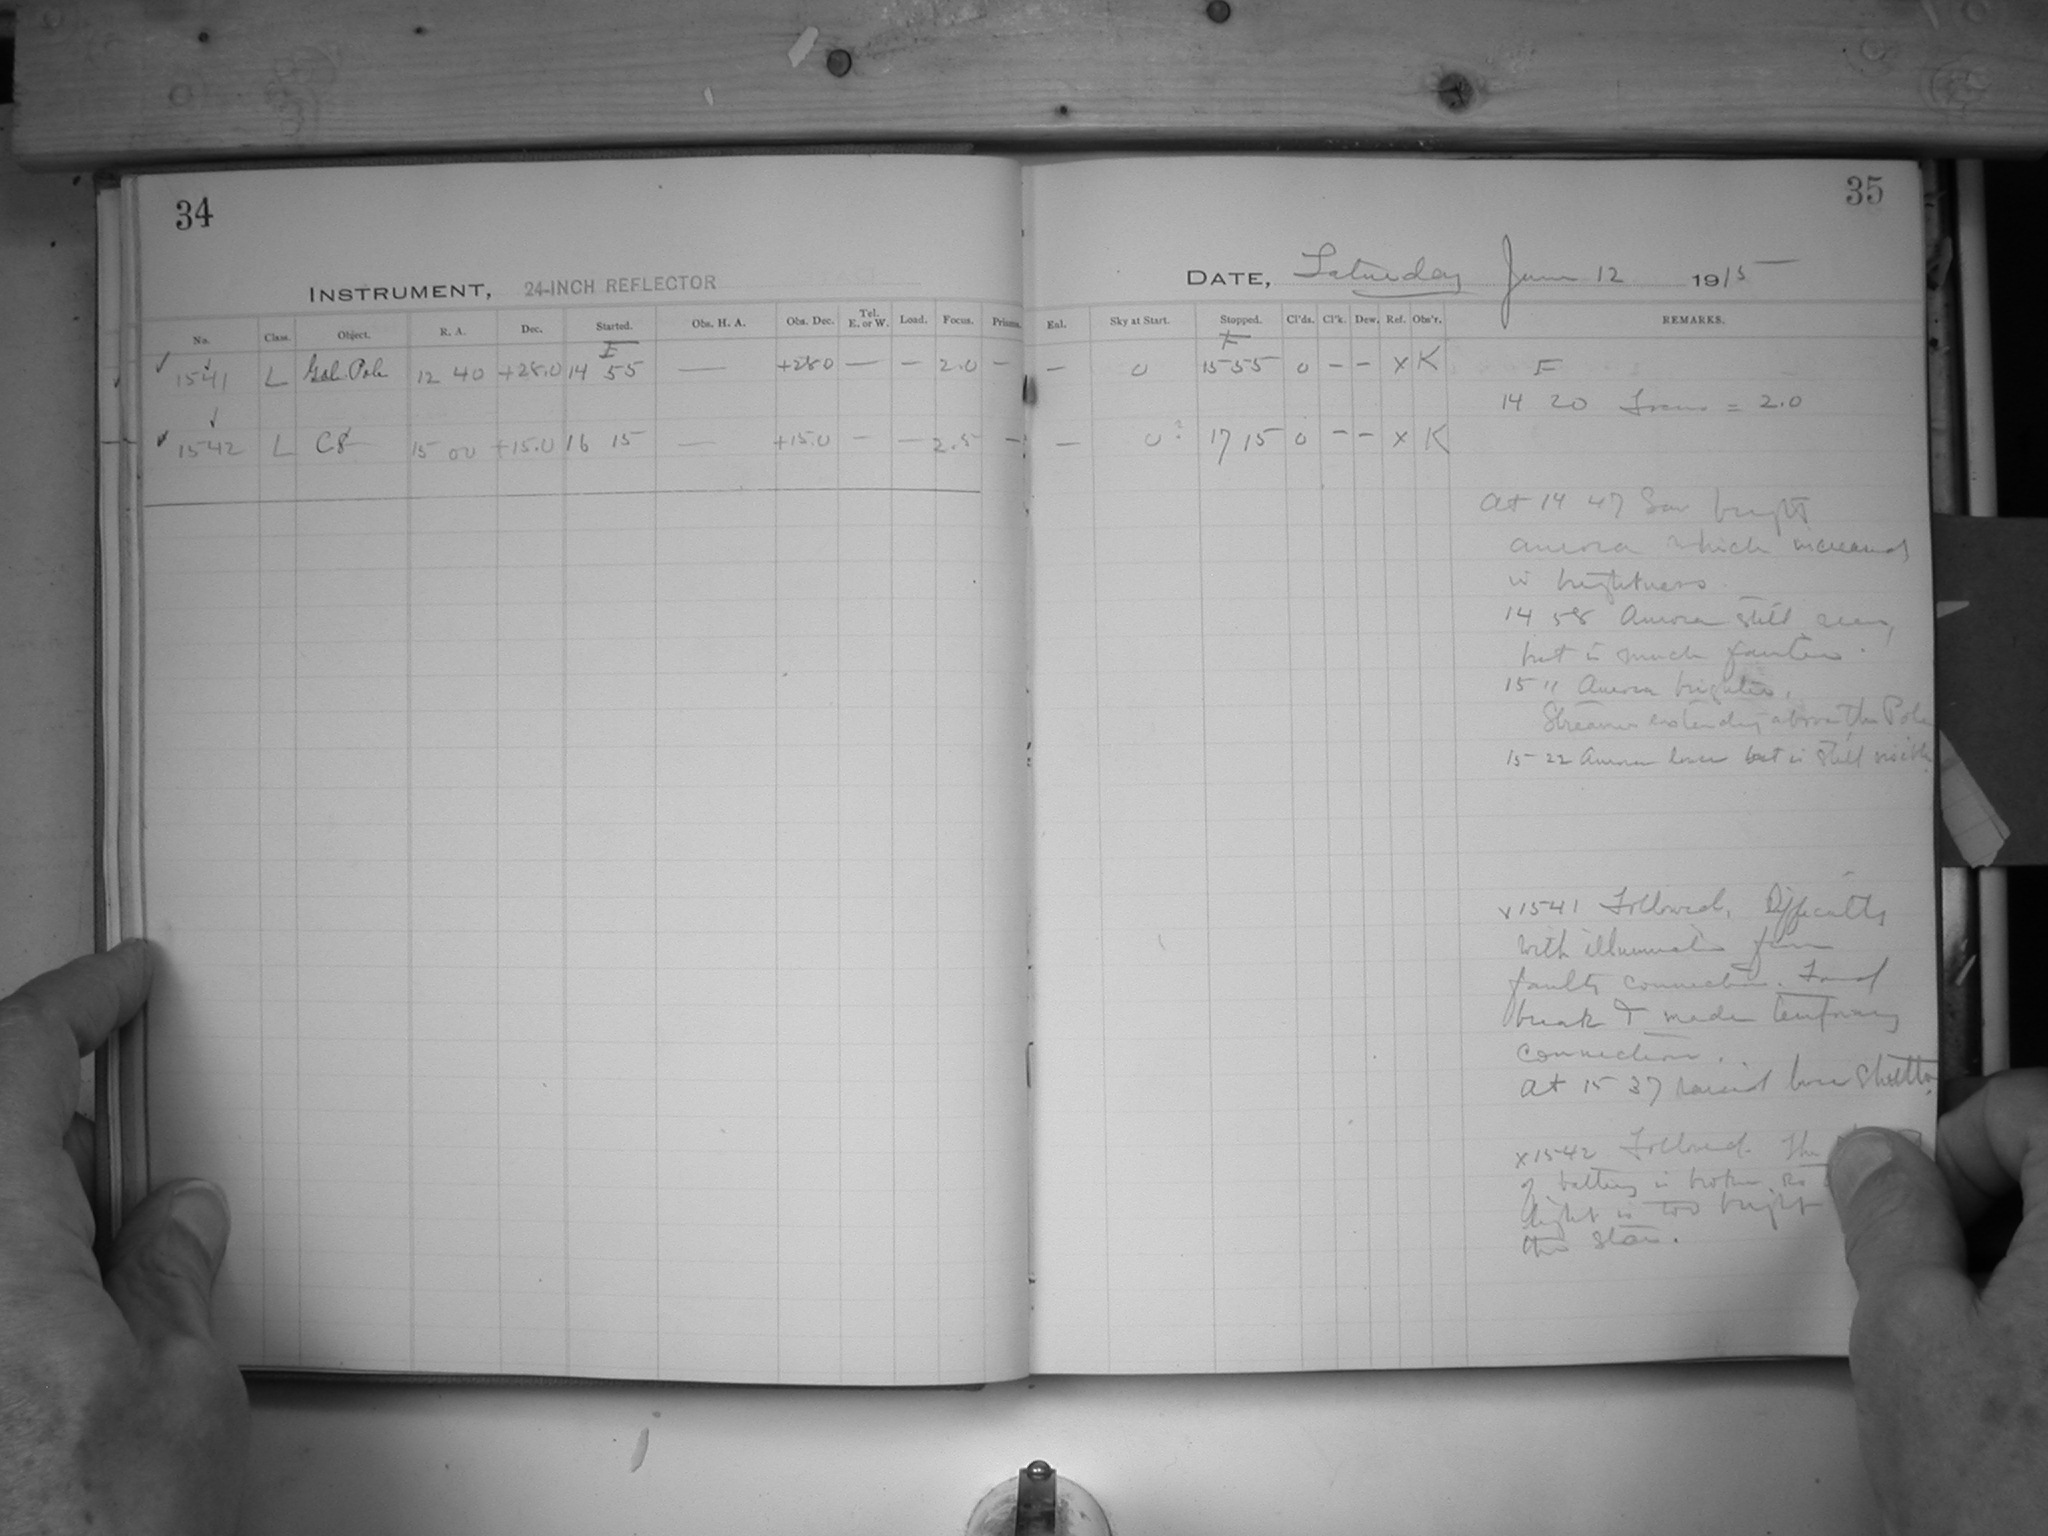 34
INSTRUMENT, 24-INCH REFLECTOR
No. Class. Object. R. A. Dec. Started. Obs. H. A. Obs. Dec. Tel. E. or W. Load. Focus. Prisms.
E
1541 L Gal. Pole 12 40 +28.0 14 55 — +28.0 — — 2.0 —
1542 L C8 15 00 +15.0 16 15 — +15.0 — — 2.5 —
35
DATE, Saturday June 12 1915
Exl. Sky at Start. Stopped. Cl'ds. Cl'k. Dew. Ref. Obs'r. REMARKS.
— 0 15 55 0 — — x K E
14 20 Focus = 2.0
— 0? 17 15 0 — — x K
At 14 47 Saw bright
aurora which increased
in brightness.
14 58 Aurora still seen,
but is much fainter.
15 11 Aurora brighter,
Streamers extending above the Pole
15 22 Aurora lower but is still visible
1541 Followed. Difficulty
with illumination from
faulty connection. Found
break & made temporary
connection.
At 15 37 raised lower shutter
x1542 Followed. The
of battery is broken so
light is too bright
the star.